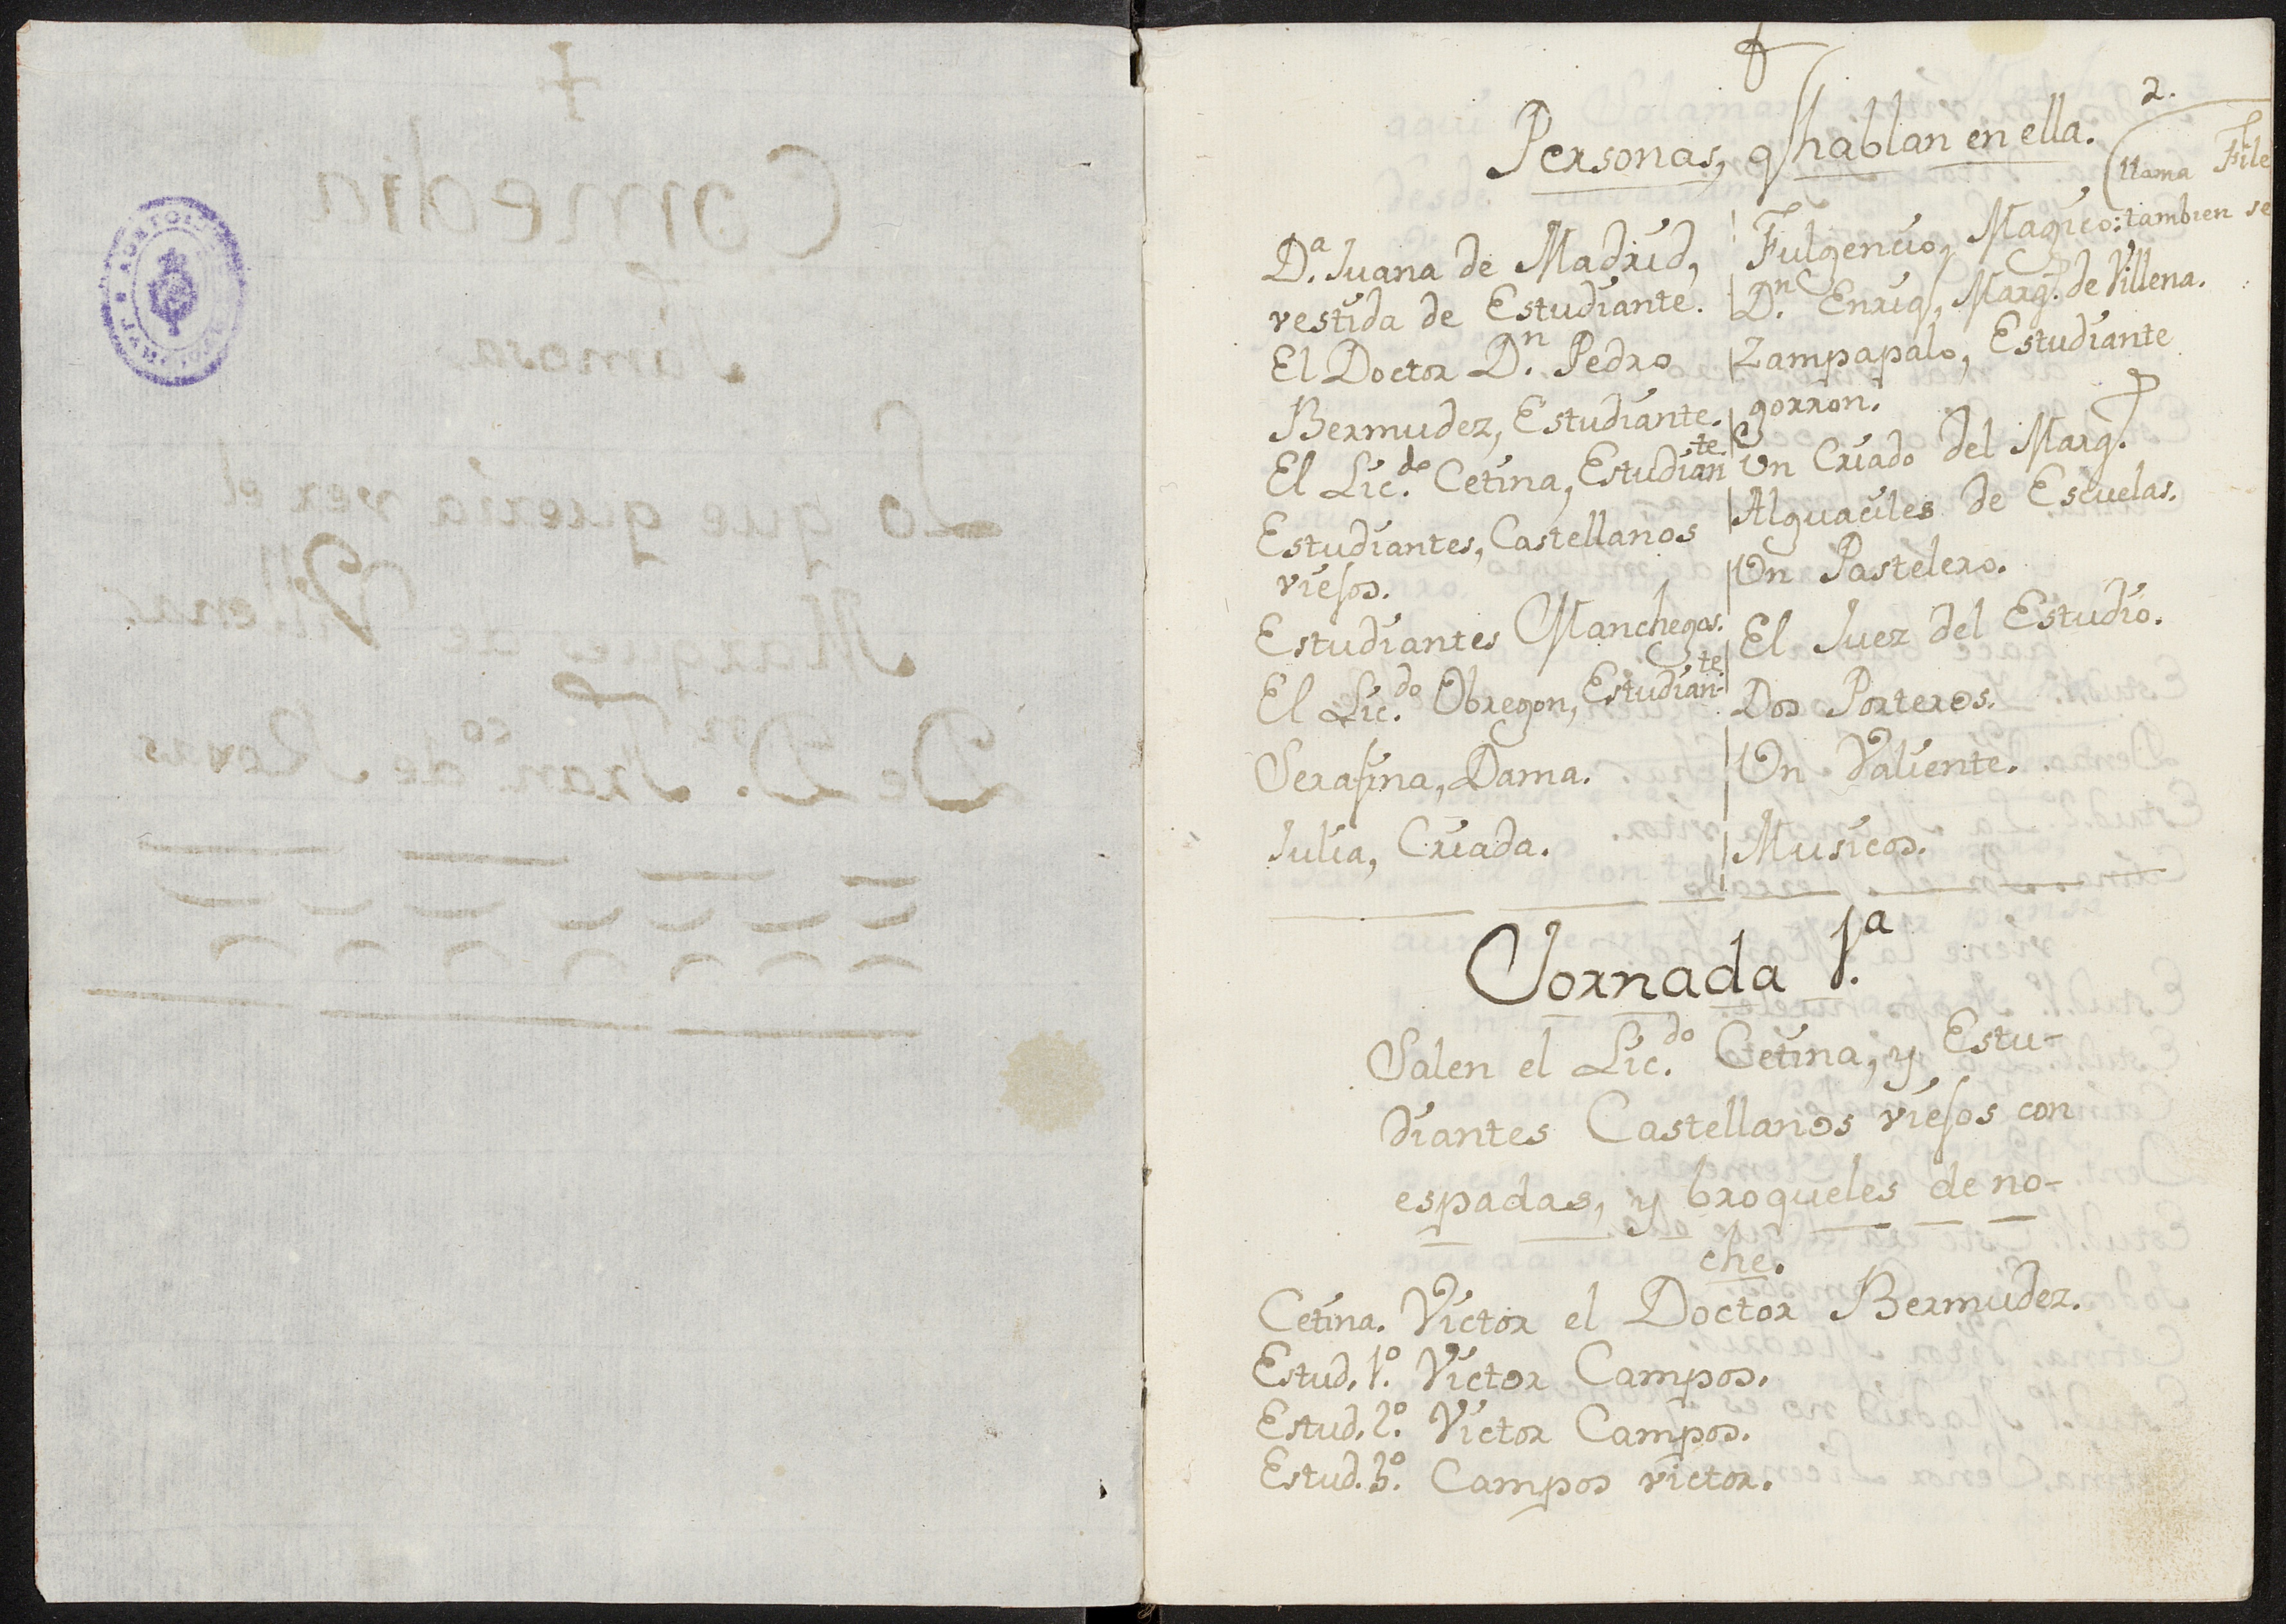 Comedia
famosa
Lo que queria ver el
Marques de Villena.
De D.n Fran.co de Roxas
2.
Personas, q hablan en ella.
D.a Juana de Madrid,
vestida de Estudiante.
El Doctor D.n Pedro
Bermudez, Estudiante.
El Lic.do Cetina, Estudiante.
Estudiantes, Castellanos
viejos.
Estudiantes Manchegos.
El Lic.do Obregon, Estudiante
Serafina, Dama.
Julia, Criada.
(llama File
Fulgencio, Magico: tambien se
D.n Enriq, Marq. de Villena.
Zampapalo, Estudiante
gorron.
Un Criado del Marq.
Alguaciles de Escuelas.
Un Pastelero.
El Juez del Estudio.
Dos Porteros.
Un Valiente.
Musicos.
Jornada 1.a
Salen el Lic.do Cetina, y Estu-
diantes Castellanos viejos con
espadas, y broqueles de no-
che.
Cetina. Victor el Doctor Bermudez.
Estud. 1.o Victor Campos.
Estud. 2.o Victor Campos.
Estud. 3.o Campos victor.